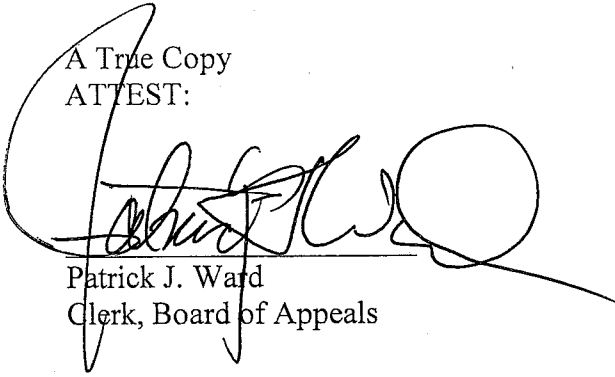 A True Copy
ATTEST:
Patrick J. Ward
Clerk, Board of Appeals